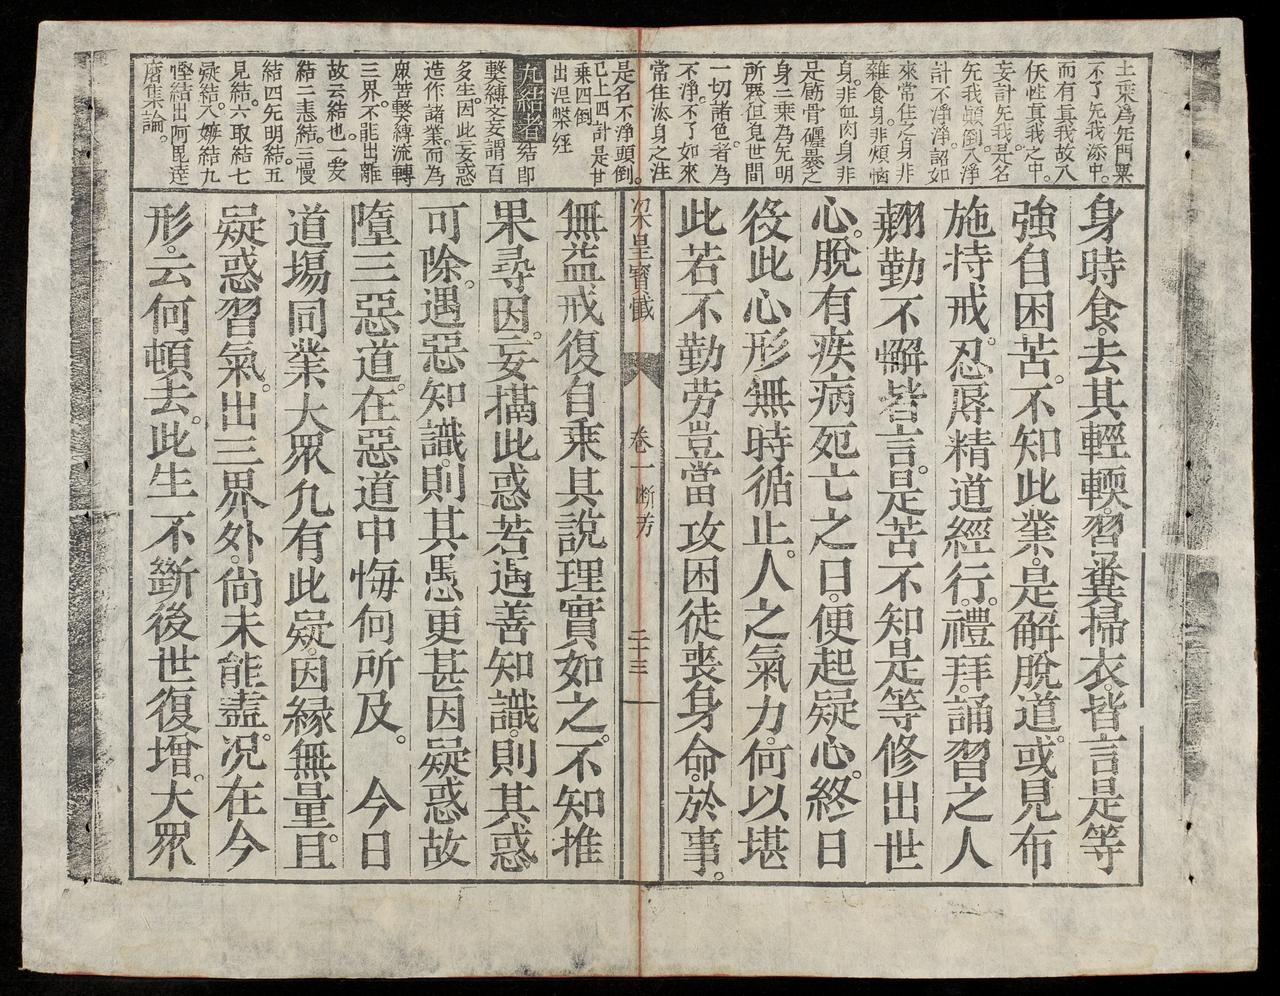 土乘為旡門稟
不了旡我添中。
而有真我故八
伏性真我之中。
妄計旡我。是名
旡我顛倒。八淨
計不淨淨。詔如
來常住之身非
雜食身。非煩惱
身。非血肉身非
是筋骨纏裹之
身二乘為旡明
所覆但見世間
一切諸色。者為
不淨。不了如來
常住法身之注
是名不淨顛倒。
已上四計是廿
乘四倒
出涅槃經
九結者 結即
繫縛之妄謂百
多生因此妄惑
造作諸業。而為
眾苦繫縛流轉
三界。不能出離
故云結也。一愛
結二恚結。三慢
結四旡明結。五
見結。六取結七
疑結。八嫉結九
慳結出阿毘達
磨集論。
身時食。去其輕輭。習糞掃衣。皆言是等
強自困苦。不知此業。是解脫道。或見布
施持戒。忍辱精道經行。禮拜。誦習之人
翹勤不懈。皆言。是苦不知是等修出世
心。脫有疾病死亡之日。便起疑心。終日
役此心形無時循止。人之氣力。何以堪
此若不勤劳豈當攻困徒喪身命。於事。
梁皇寶懺 卷一 斷疑 二十三
無益戒復自乘其說理實如之。不知推
果尋因。妄搆此惑若遇善知識。則其惑。
可除。遇惡知識。則其愚更甚因疑惑故
墮三惡道。在惡道中悔何所及。 今日
道場同業大眾凡有此疑。因緣無量。且
疑惑習氣。出三界外。尚未能盡。况在今
形。云何頓去。此生不斷後世復增。大眾